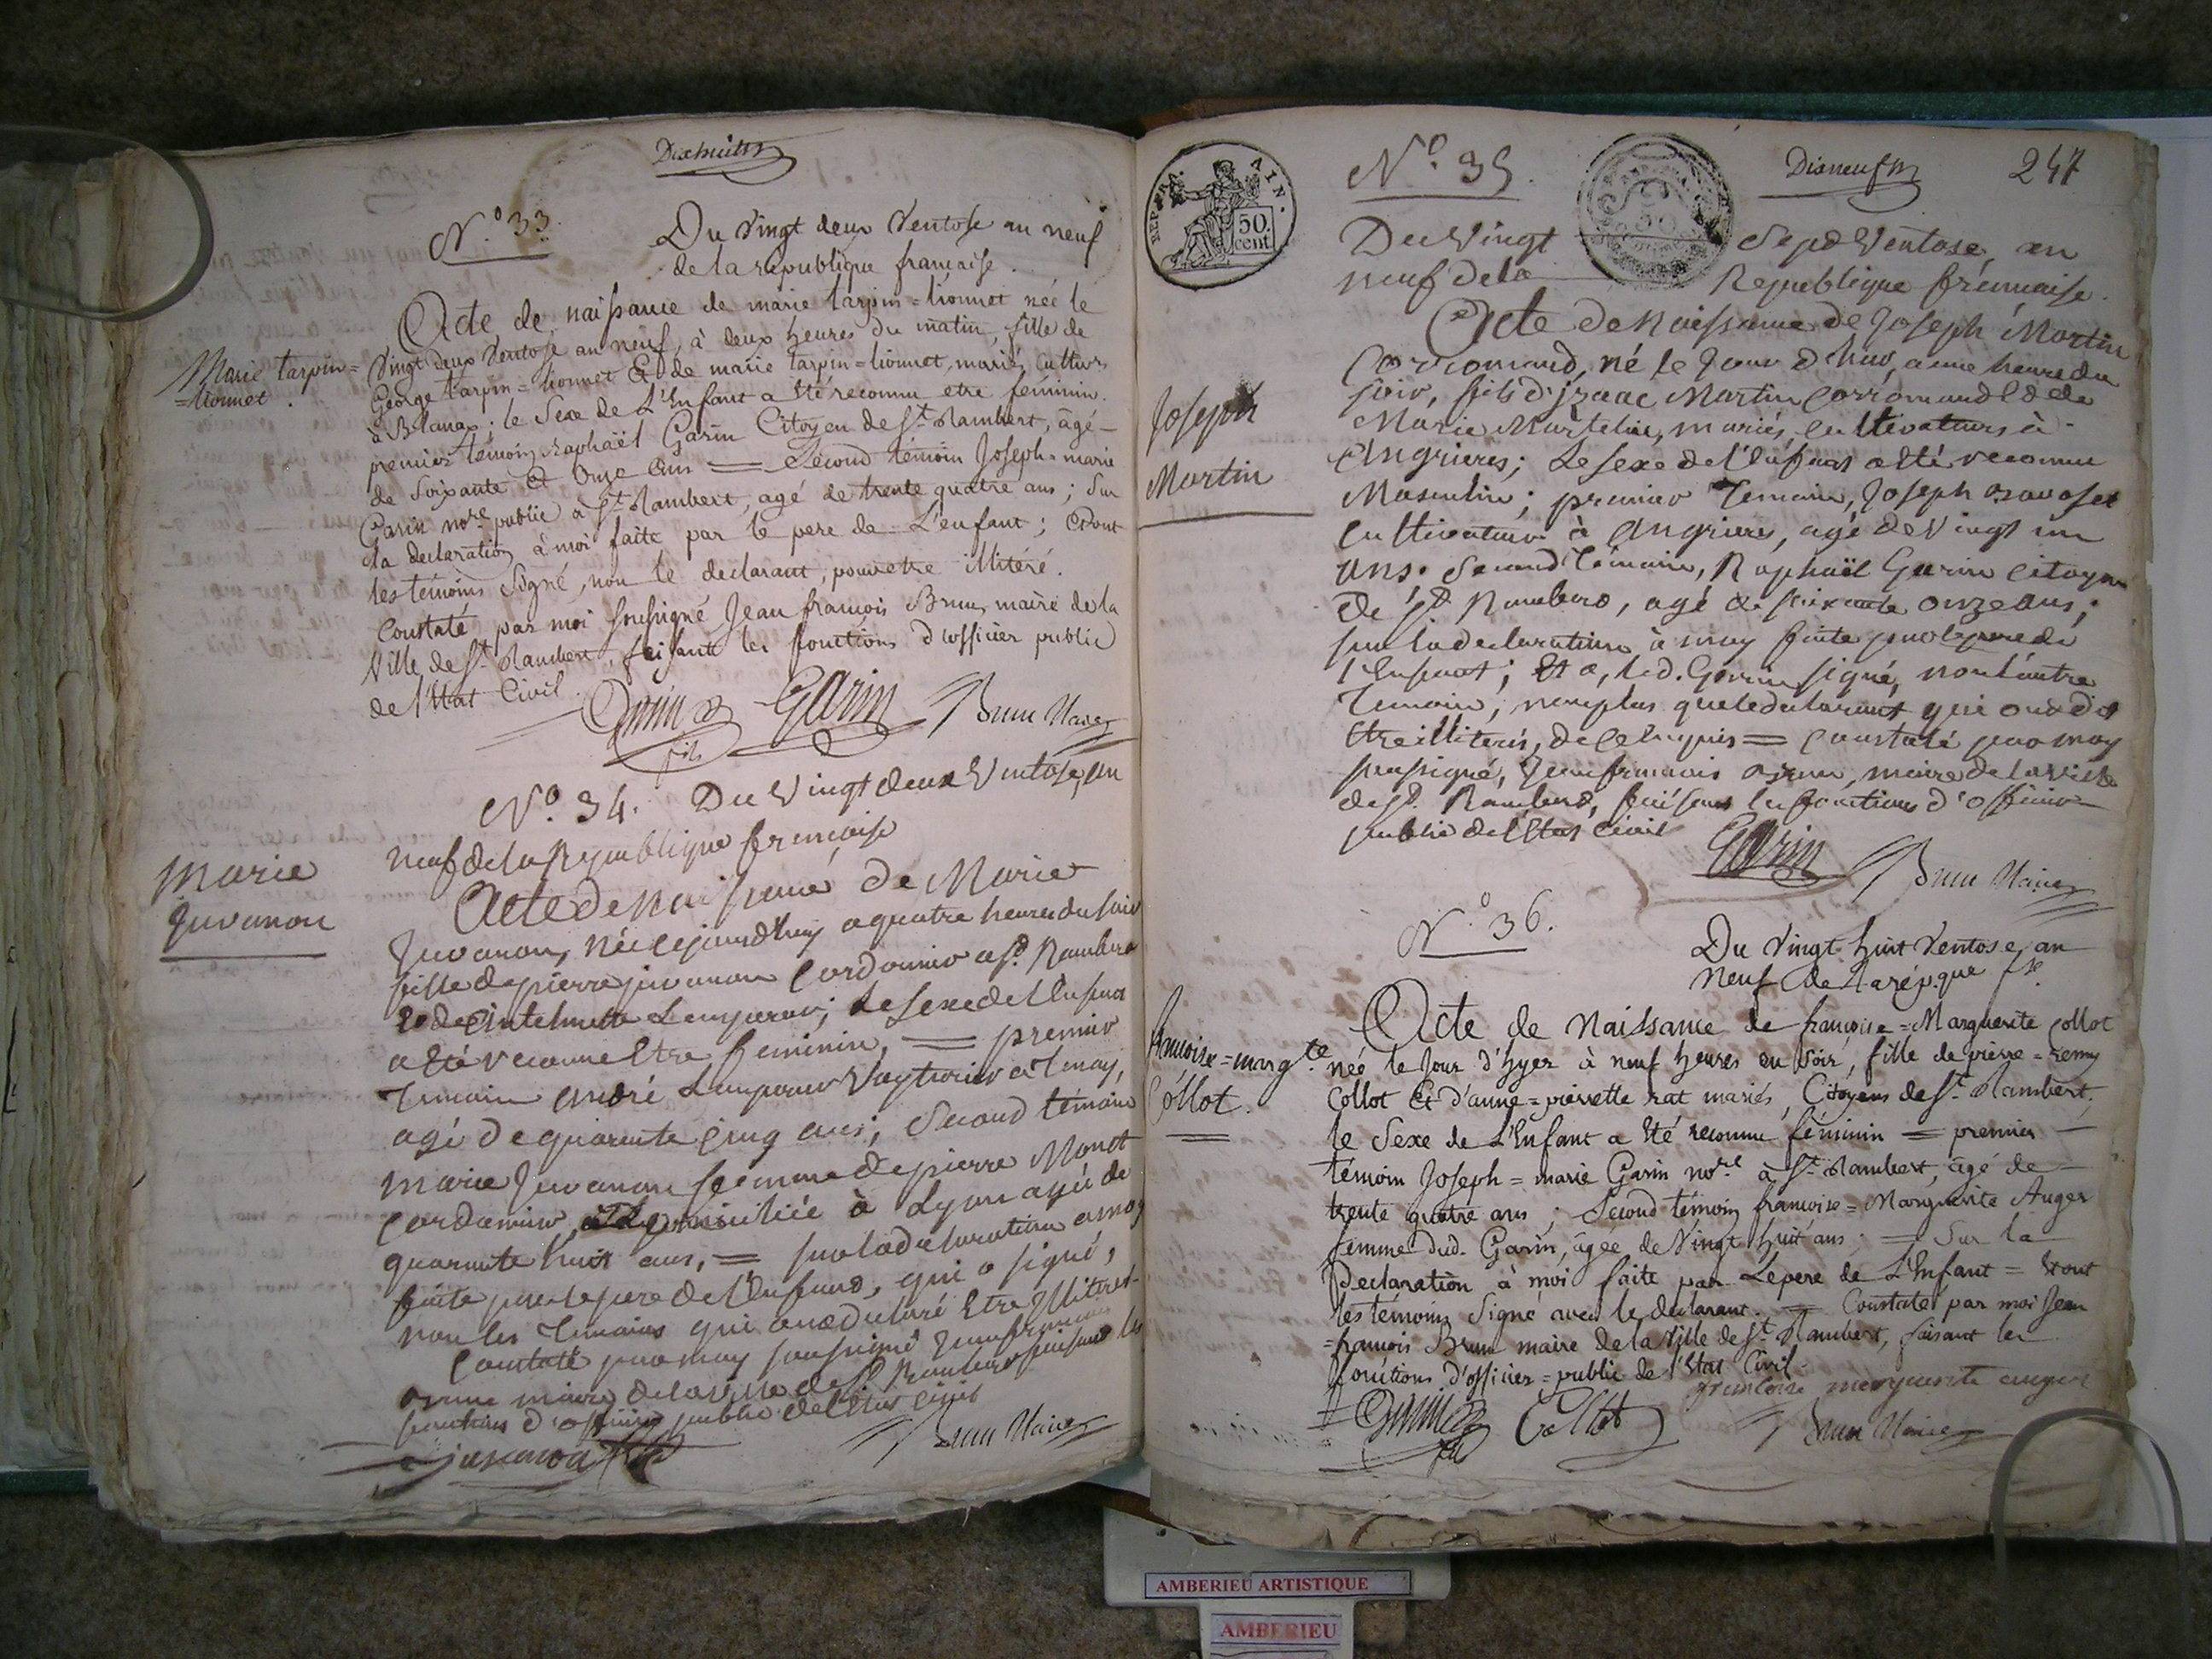 Dixhuit
N.o 33.
Du Vingt deux Ventose an neuf
de la republique française.
Acte de naissance de marie tarpin = lionnet née le
Marie tarpin =
= lionnet.
Vingt deux Ventose an neuf, à deux heures du matin, fille de
George tarpin = lionnet Et de marie tarpin = lionnet, mariés, Cultivrs
à Blanaz; le Sexe de L'Enfant a Eté reconnu etre féminin.
premier témoin Raphaël Garin Citoyen de St. Rambert, âgé
de Soixante et Onze ans = Second témoin Joseph = marie
Garin nore. public à St. Rambert, agé de trente quatre ans; Sur
la declaration à moi faite par le pere de L'enfant; Et ont
les témoins Signé, non le declarant, pour etre illitéré.
Constaté par moi soussigné Jean françois Brun, maire de la
Ville de St. Rambert, faisant les fonctions d'officier public
de l'Etat Civil.
Garin fils Garin Brun Maire
N.o 34. Du Vingt deux Ventose, an
neuf de la Republique françaisse
Marie
Juvanon
Acte de Naissance de Marie
Juvanon, née cejourdhuy a quatre heures du soir
fille de pierre juvanon Cordonnier a St. Rambert
Et de Anthelmette Lempereur; Le Sexe de l'Enfant
a Eté reconnu Etre feminin, = premier
Temoin André Lempereur Voyturier a Tenay,
agé de quarante Cinq ans; Second témoin
Marie Juvanon femme de pierre Monet
Cordonnier domiciliée à Lyon agée de
quarante huit ans, = sur la declaration a moy
faite par le pere de l'Enfant, qui a signé,
non les Temoins qui ont declaré Etre Illiteres.
Constaté par moy soussigné Jean françois
Brun maire de la ville de St. Rambert faisant les
fonctions d'officier public de l'Etat civil
juvanon Brun Maire
REP. FRA. AIN.
50. cent.
N.o 35.
Disneuf
247
Du Vingt Sept Ventose, an
neuf de la Republique frénnaise.
Joseph
Martin
Acte de Naissance de Joseph Martin
Corromand, né le Jour d'hier, a une heure du
soir, fils d'Jzaac Martin Corromand Et de
Marie Martelin, mariés, cultivateurs à
Angrieres; Le sexe de l'Enfant a Eté reconnu
Masculin; premier Temoin, Joseph
cultivateur à Angrieres, agé de vingt un
ans; Second Témoin, Raphaël Garin Citoyen
de St. Rambert, agé de soixante onze ans;
sur la declaration à moy faite par le pere de
l'Enfant; Et a, led. Garin signé, non l'autre
Temoin, nonplus que le declarant, qui ont dit
Etre illiterés, de ce Enquis = Constaté par moy
soussigné, Jean françois Brun, maire de la ville
de St. Rambert, faisant les fonctions d'officier
public de l'Etat Civil
Garin Brun Maire
N.o 36.
Du Vingt huit Ventose, an
Neuf de La rép.que fse.
françoise = margte.
Collot.
Acte de Naissance de françoise = Marguerite Collot
née le Jour d'hyer à neuf heures du Soir, fille de pierre = remy
Collot Et d'anne = pierrette rat mariés, Citoyens de St. Rambert;
le Sexe de L'Enfant a Eté reconnu féminin = premier
témoin Joseph = marie Garin nore. à St. Rambert, âgé de
trente quatre ans; Second témoin françoise = Marguerite Auger
femme dud. Garin, âgée de Vingt huit ans; = Sur la
Declaration à moi faite par Le pere de L'Enfant = Et ont
les témoins Signé avec le déclarant. = Constaté par moi Jean
= françois Brun maire de la Ville de St. Rambert, faisant les
fonctions d'officier = public de l'Etat Civil.
francoise marguerite auger
Garin fils Collot Brun Maire
AMBERIEU ARTISTIQUE
AMBERIEU